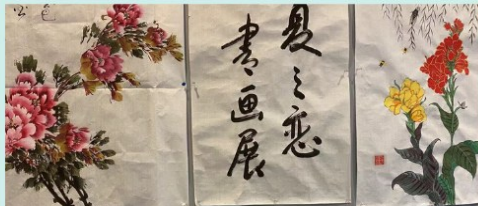 夏之恋
書画展